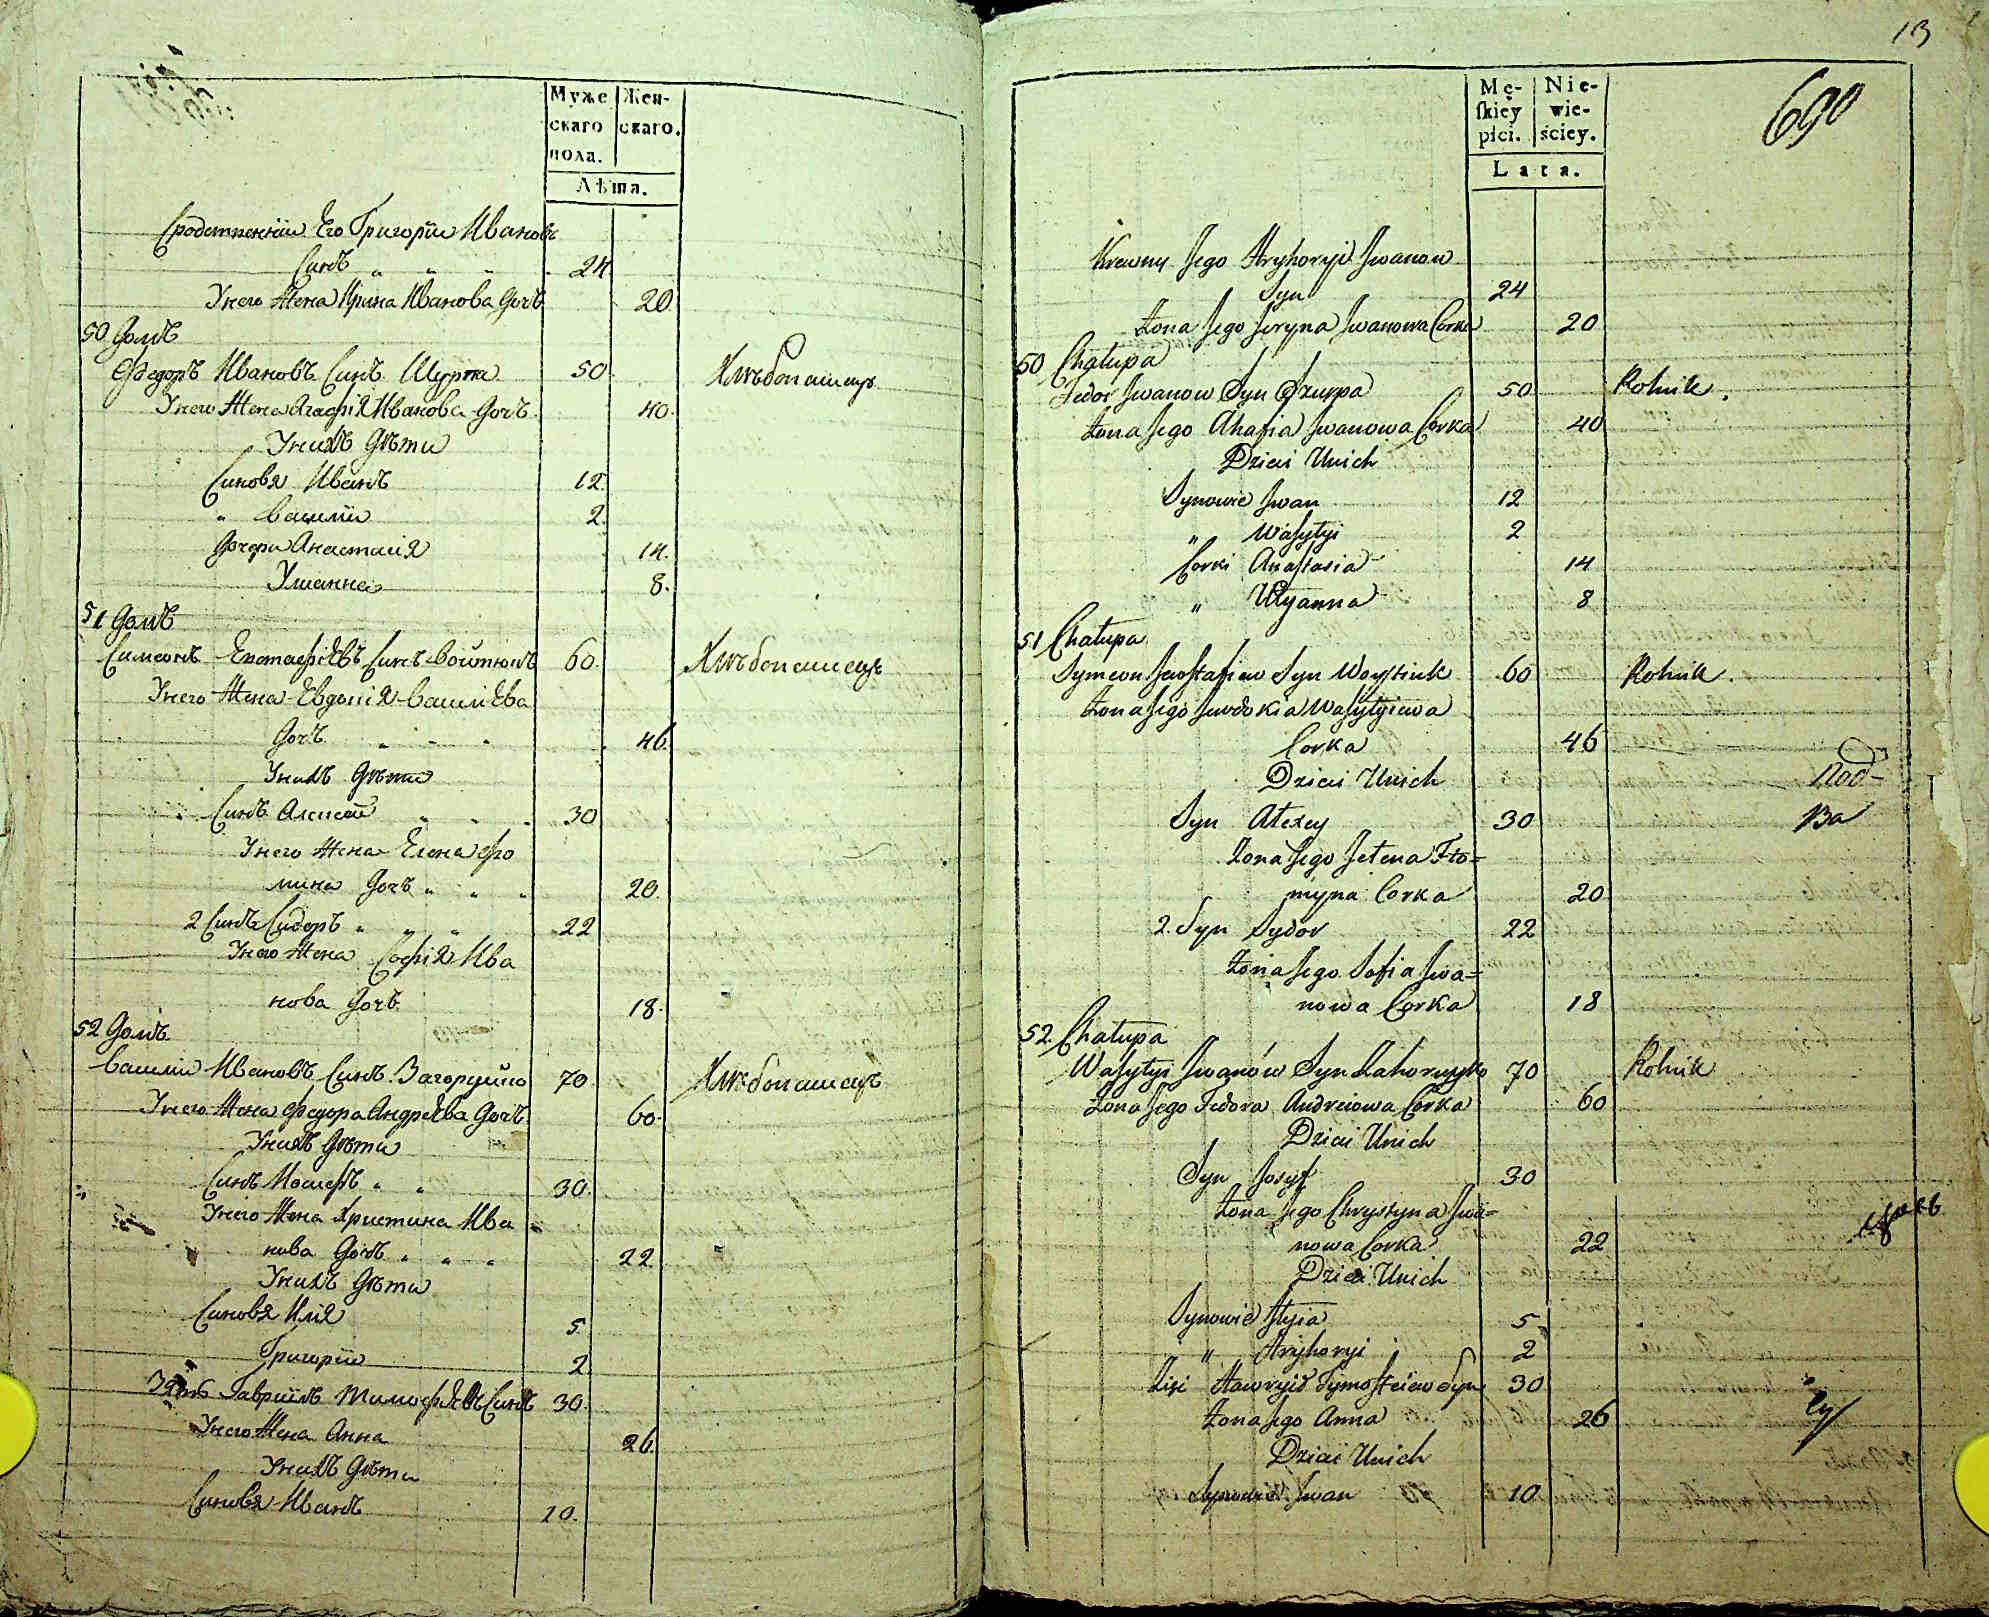 Муже
скаго
пола.
Жен-
скаго.
Лѣта.
Сродственный Его Григорій Ивановъ
Синъ " " " 24
Унего Жена Ирина Иванова Дочъ 20
50 Домъ
Федоръ Ивановъ Синъ Шурпа 50 Хлѣбопашецъ
Унего Жена Агафія Иванова Дочъ 40.
Унихъ Дѣти
Синовя Иванъ 12
" Василій 2.
Дочери Анастасія 14.
Улианна 8.
51 Домъ
Симеонъ Евстафіевъ Синъ Войтюкъ 60. Хлѣбопашецъ
Унего Жена Евдокія Василіева
Дочъ " " " 46
Унихъ Дѣти
Синъ Алексей " " " 30
Унего Жена Елена Фто
мина Дочъ " " " 20.
2 Синъ Сидоръ " " " 22
Унего Жена Софія Ива
нова Дочъ 18.
52 Домъ
Василій Ивановъ Синъ Загоруйко 70. Хлѣбопашецъ
Унего Жена Федора Андріева Дочъ 60.
Унихъ Дѣти
Синъ Иосифъ " " 30.
Унего Жена Христина Ива
нова Дочъ " " " 22
Унихъ Дѣти
Синовя Илія 5
Григорій 2
Зять Гавриилъ Тимофѣевъ Синъ 30.
Унего Жена Анна 26.
Унихъ Дѣти
Синовя Иванъ 10.
13
690
Mę-
skiey
płci.
Nie-
wie-
ściey.
Lata.
Krewny Jego Hryhoryi Iwanow
Syn 24
Żona Jego Iryna Iwanowa Corka 20
50 Chałupa
Fedor Iwanow Syn Szurpa 50 Rolnik.
Żona Jego Ahafia Iwanowa Corka 40
Dzieci Unich
Synowie Iwan 12
" Wasylyi 2
Corki Anastasia 14
" Ulyanna 8
51 Chałupa
Symeon Jewstafiew Syn Woytiuk 60 Rolnik.
Żona Jego Jewdokia Wasylyiewa
Corka 46
Dzieci Unich
Syn Alexey 30
Żona Jego Jelena Fto=
myna Corka 20
2. Syn Sydor 22
Żona Jego Sofia Iwa=
nowa Corka 18
52. Chałupa
Wasylyi Iwanow Syn Zahoruyko 70 Rolnik
Żona Jego Fedora Andreiowa Corka 60
Dzieci Unich
Syn Josyf 30
Żona Jego Chrystyna Iwa=
nowa Corka 22
Dzieci Unich
Synowie Ilyia 5
" Hryhoryi 2
Zięć Hawryił Tymofteiew Syn 30
Żona Jego Anna 26
Dzieci Unich
Synowie Iwan 10